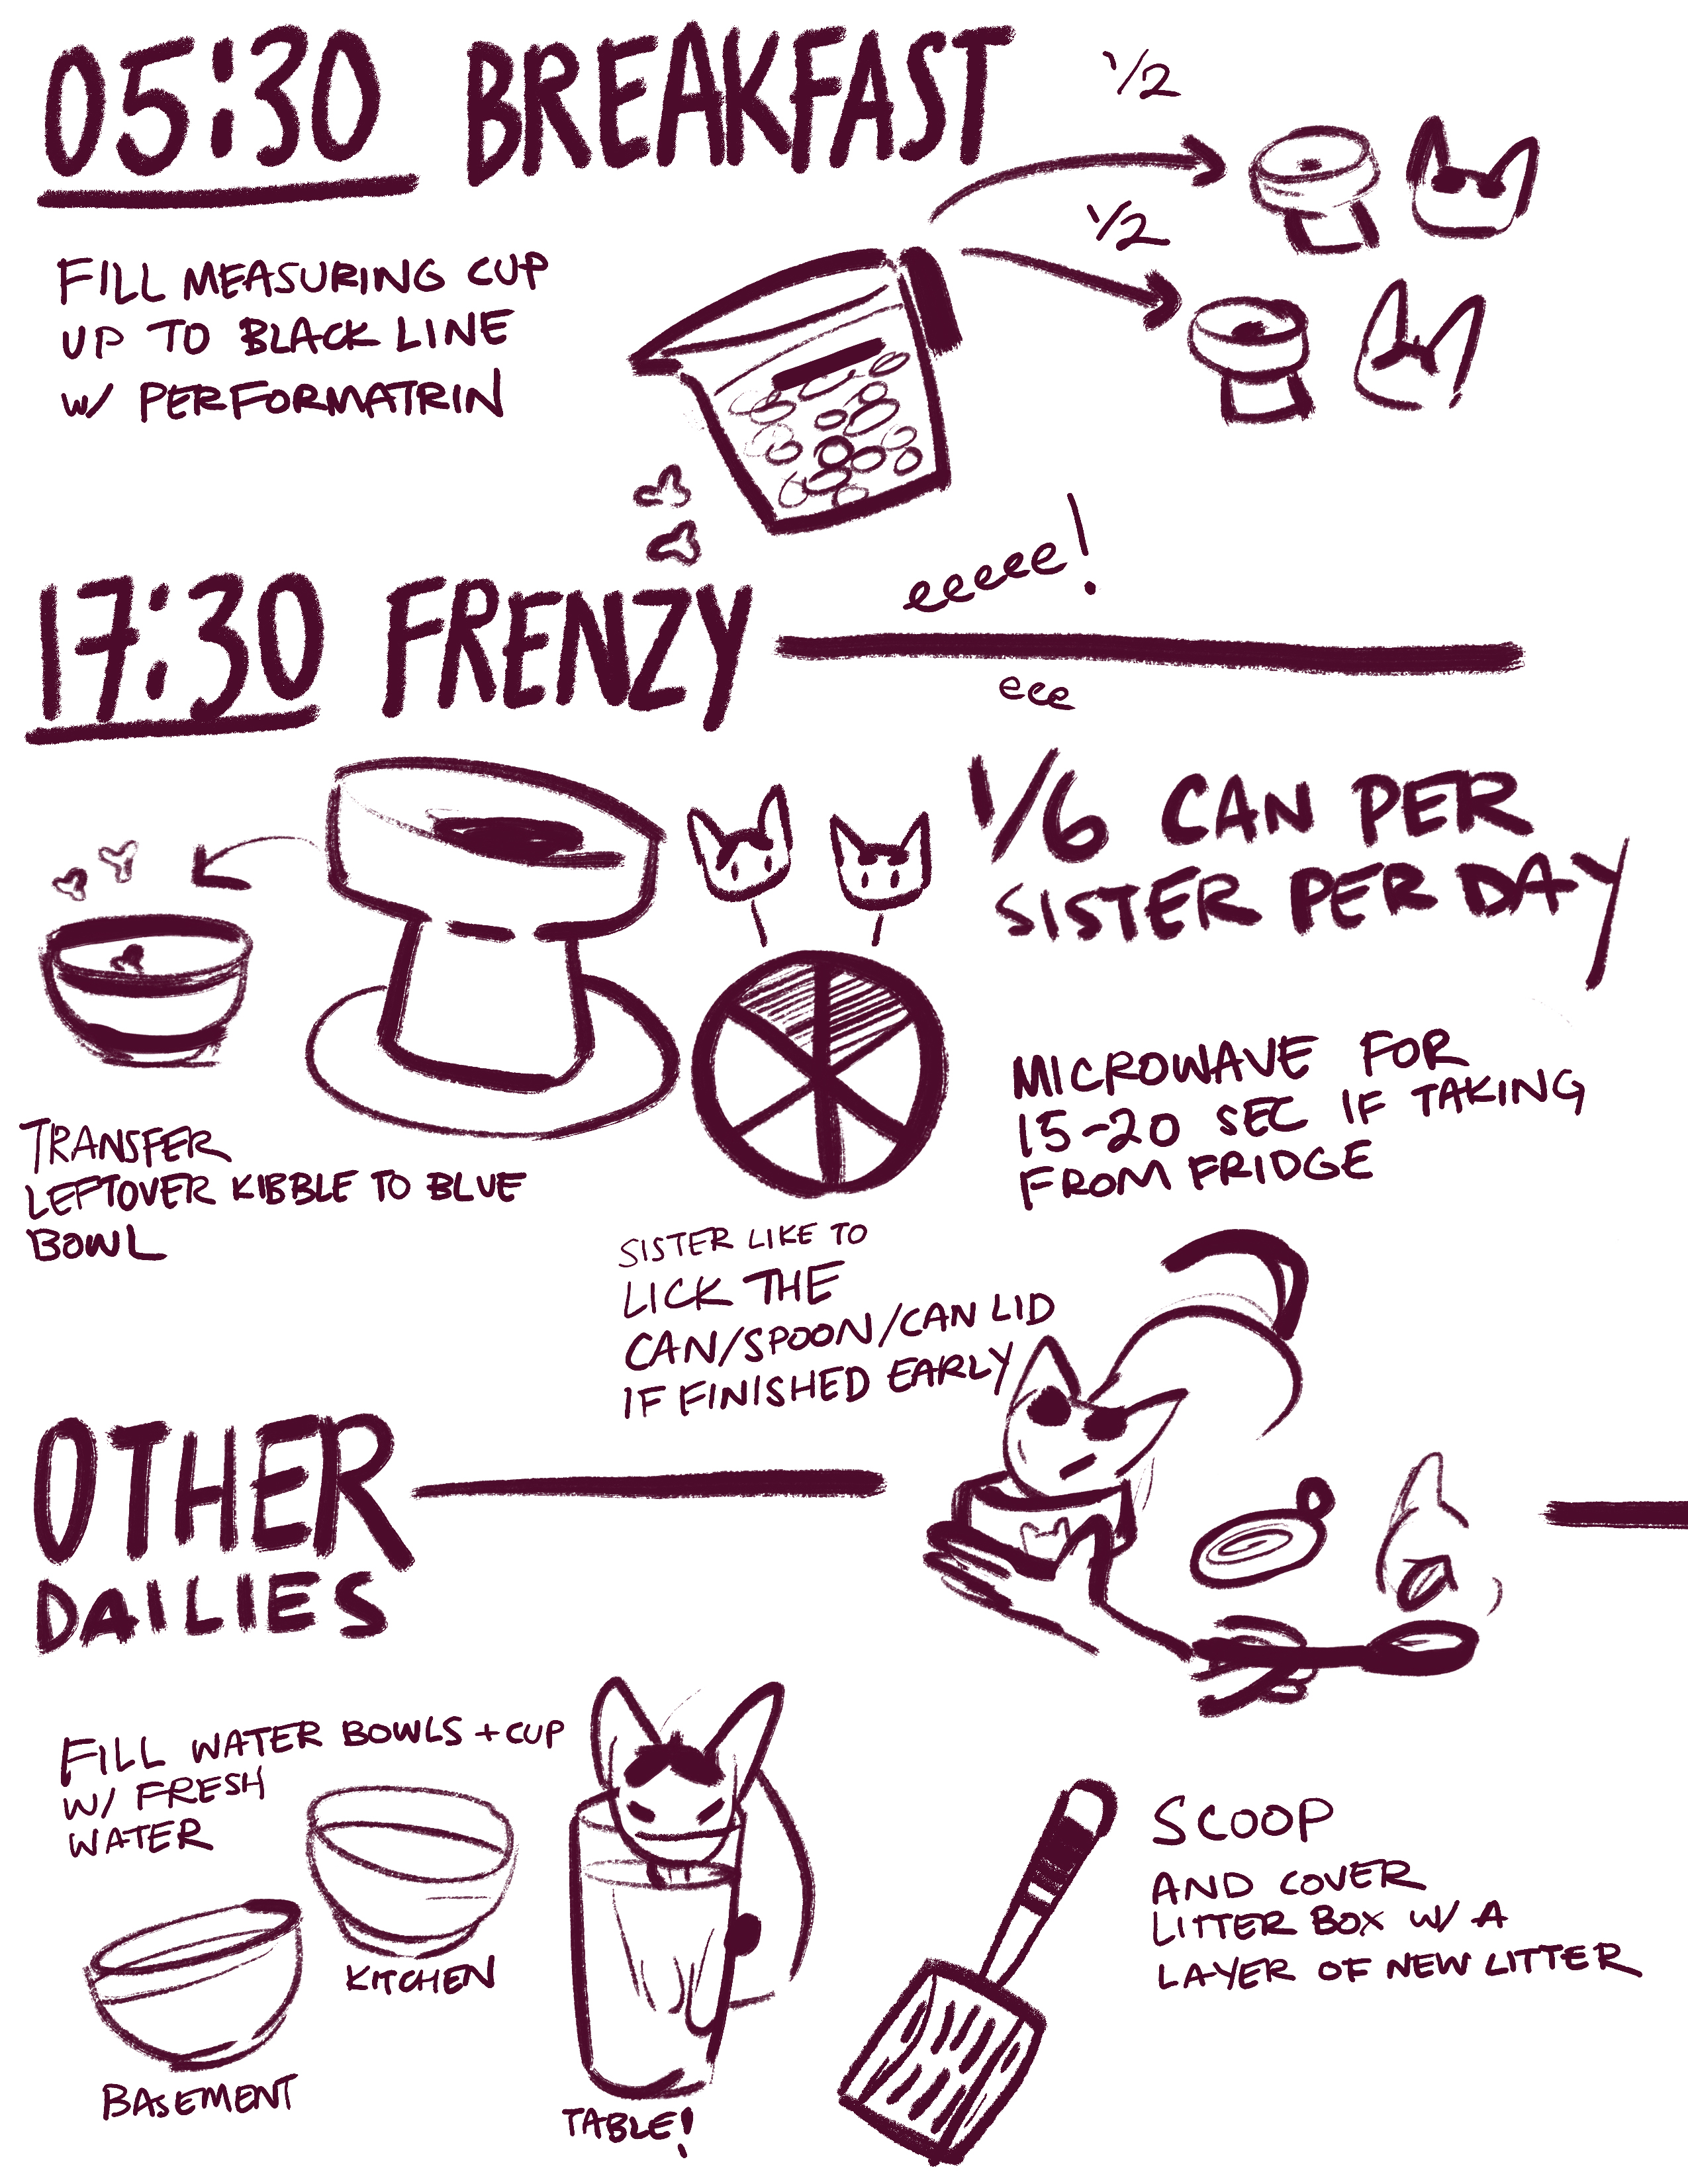 05:30 BREAKFAST
1/2
1/2
FILL MEASURING CUP
UP TO BLACK LINE
W/ PERFORMATRIN
eeeee!
17:30 FRENZY
eee
1/6 CAN PER
SISTER PER DAY
MICROWAVE FOR
15-20 SEC IF TAKING
FROM FRIDGE
TRANSFER
LEFTOVER KIBBLE TO BLUE
BOWL
SISTER LIKE TO
LICK THE
CAN/SPOON/CAN LID
IF FINISHED EARLY
OTHER
DAILIES
FILL WATER BOWLS + CUP
W/ FRESH
WATER
KITCHEN
BASEMENT
TABLE!
SCOOP
AND COVER
LITTER BOX W/ A
LAYER OF NEW LITTER